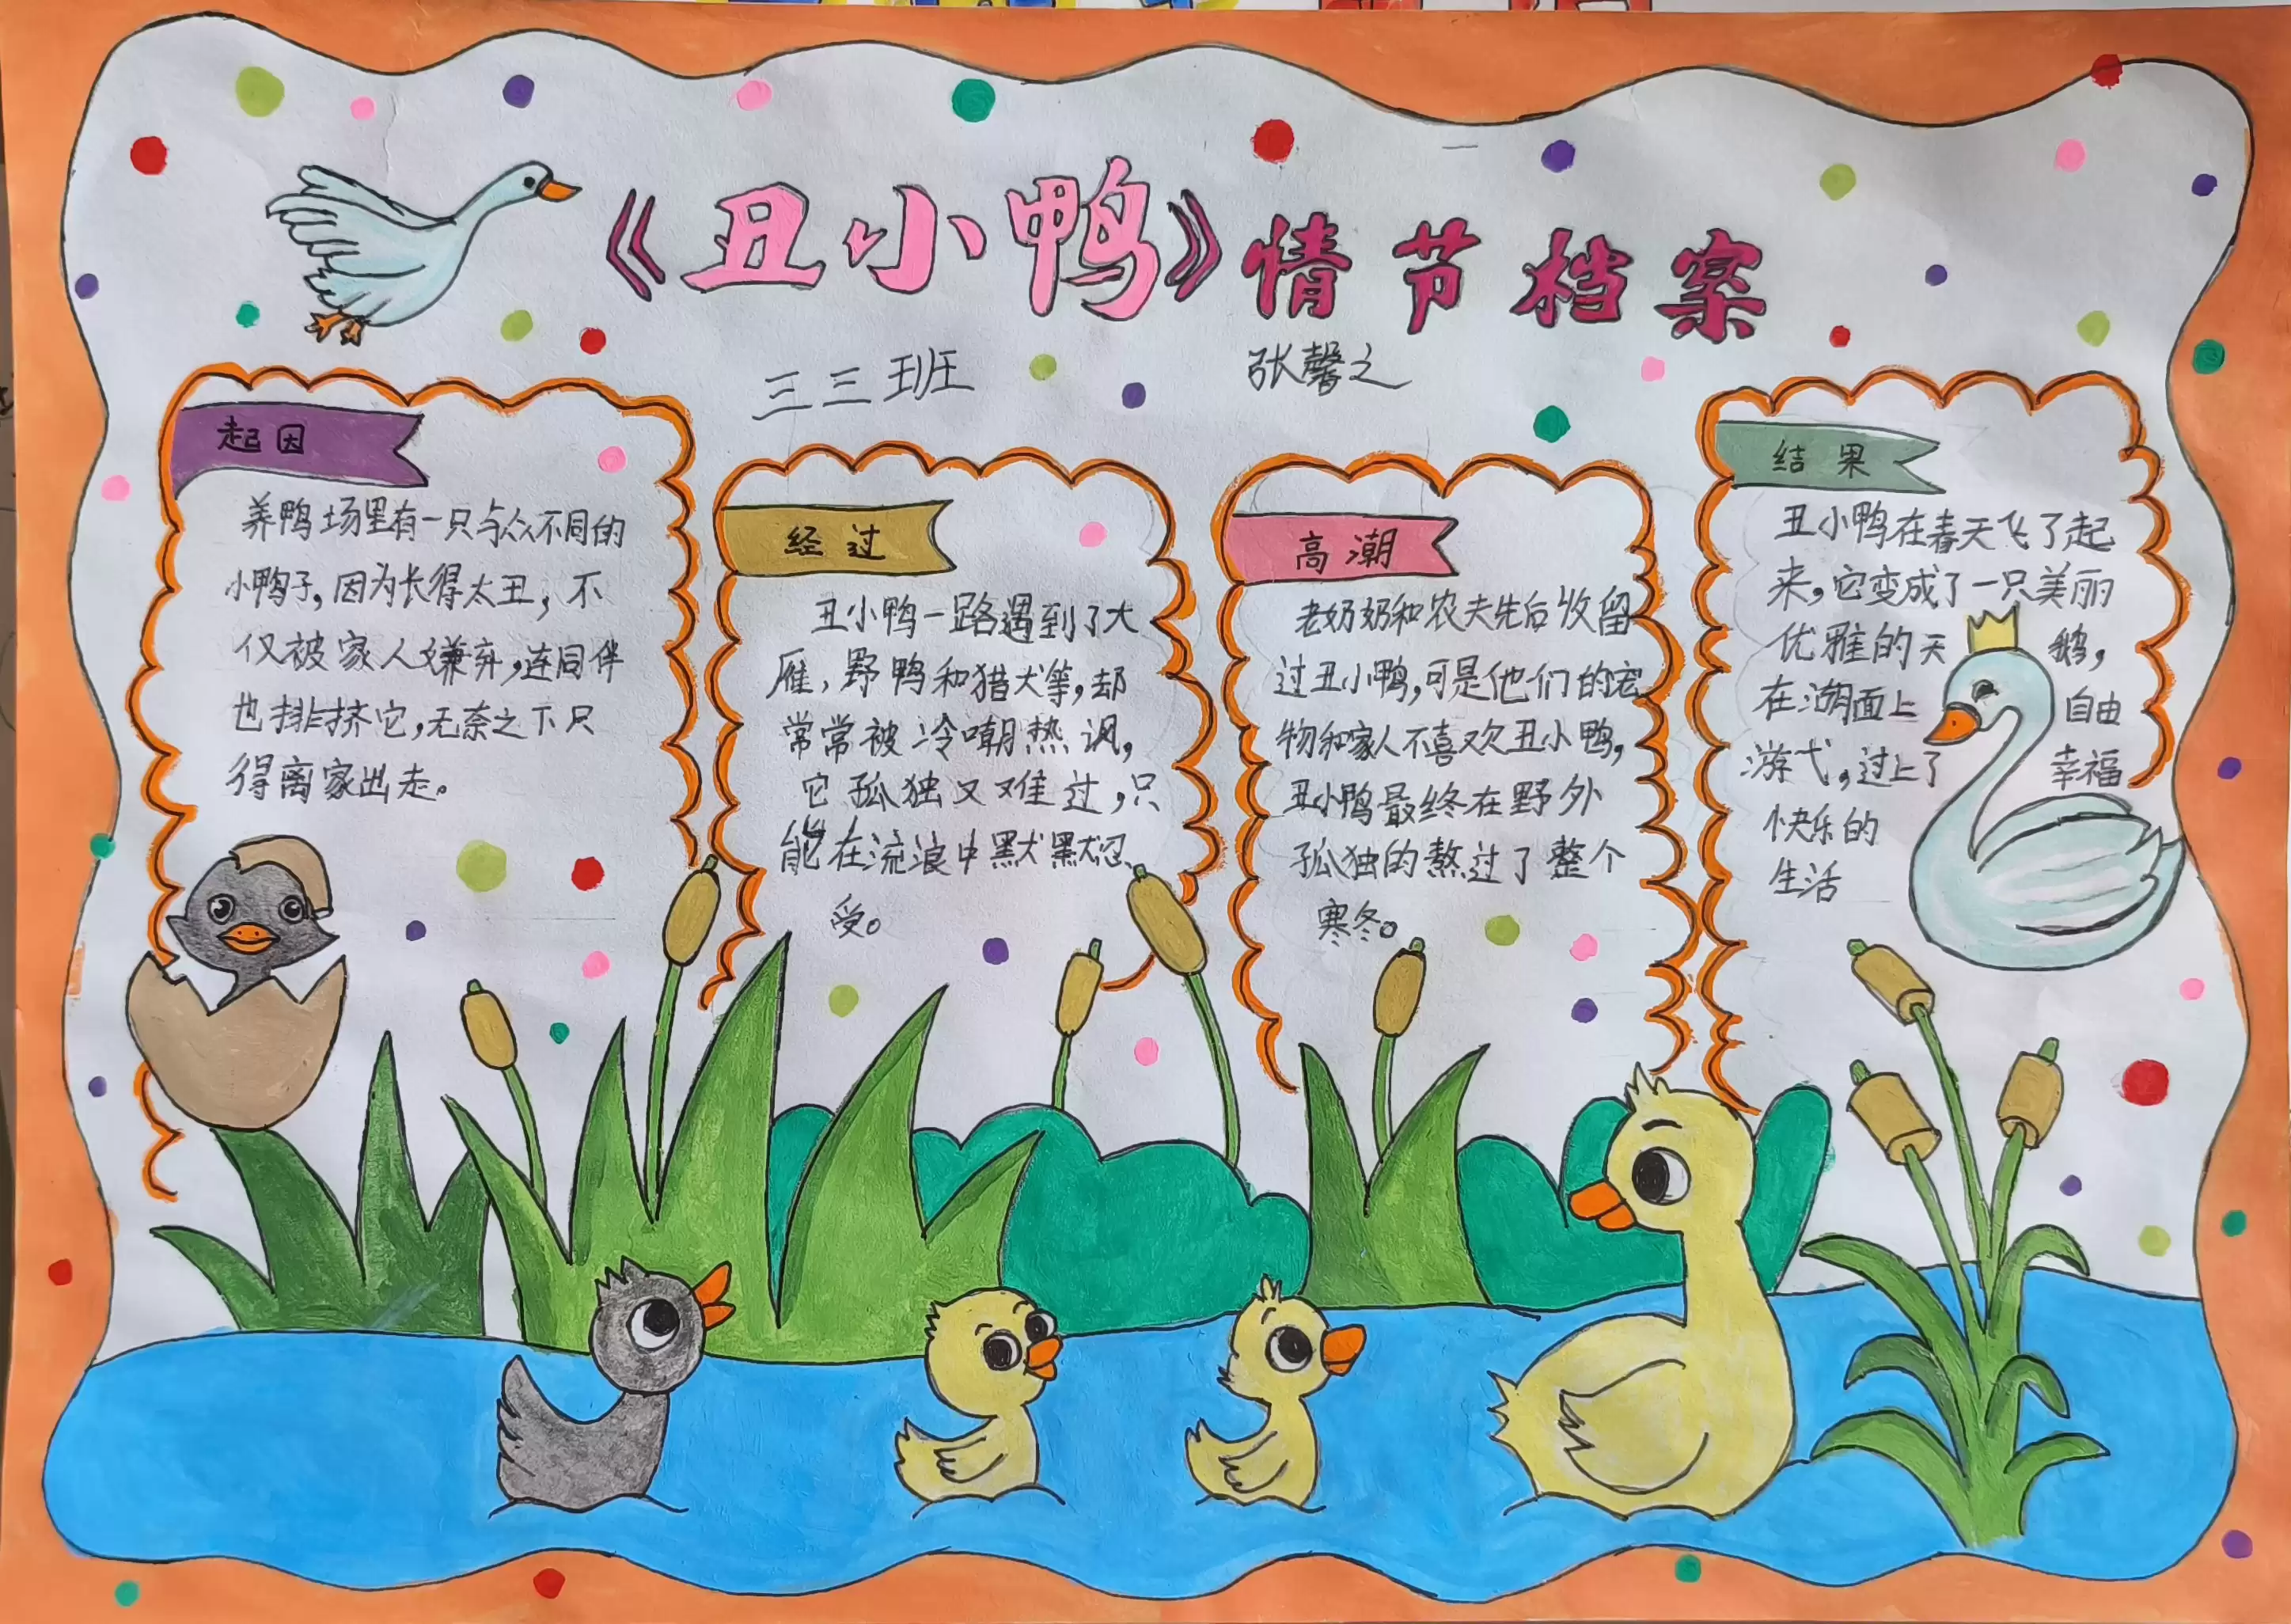 《丑小鸭》情节档案
三三班 张馨之
起因
养鸭场里有一只与众不同的
小鸭子,因为长得太丑,不
仅被家人嫌弃,连同伴
也排挤它,无奈之下只
得离家出走。
经过
丑小鸭一路遇到了大
雁,野鸭和猎犬等,却
常常被冷嘲热讽,
它孤独又难过,只
能在流浪中默默忍
受。
高潮
老奶奶和农夫先后收留
过丑小鸭,可是他们的宠
物和家人不喜欢丑小鸭,
丑小鸭最终在野外
孤独的熬过了整个
寒冬。
结果
丑小鸭在春天飞了起
来,它变成了一只美丽
优雅的天鹅,
在湖面上自由
游弋,过上了幸福
快乐的
生活